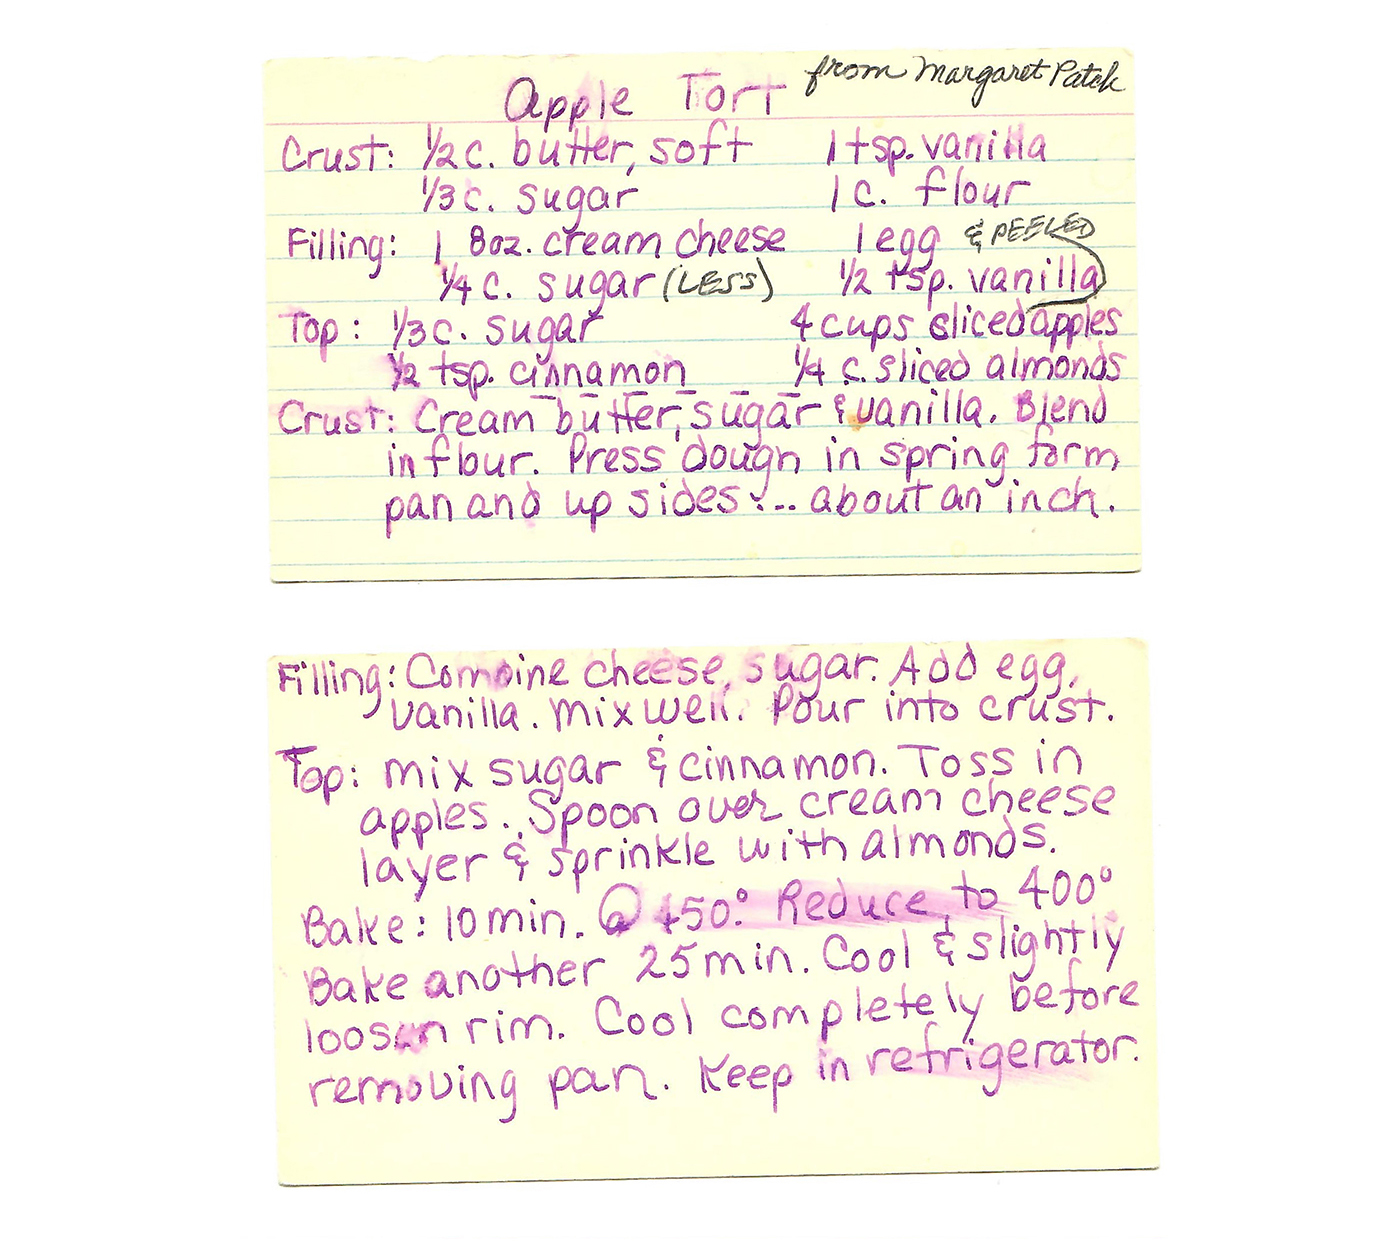 Apple Tort from Margaret Patch
Crust: 1/2 c. butter, soft 1 tsp. vanilla
1/3 c. sugar 1 c. flour
Filling: 1 8oz. cream cheese 1 egg & PEELED
1/4 c. sugar (LESS) 1/2 tsp. vanilla
Top: 1/3 c. sugar 4 cups sliced apples
1/2 tsp. cinnamon 1/4 c. sliced almonds
Crust: Cream butter, sugar & vanilla. Blend
in flour. Press dough in spring form
pan and up sides... about an inch.
Filling: Combine cheese, sugar. Add egg,
vanilla. Mix well. Pour into crust.
Top: mix sugar & cinnamon. Toss in
apples. Spoon over cream cheese
layer & sprinkle with almonds.
Bake: 10 min. @ 450°. Reduce to 400°
Bake another 25 min. Cool & slightly
loosen rim. Cool completely before
removing pan. Keep in refrigerator.